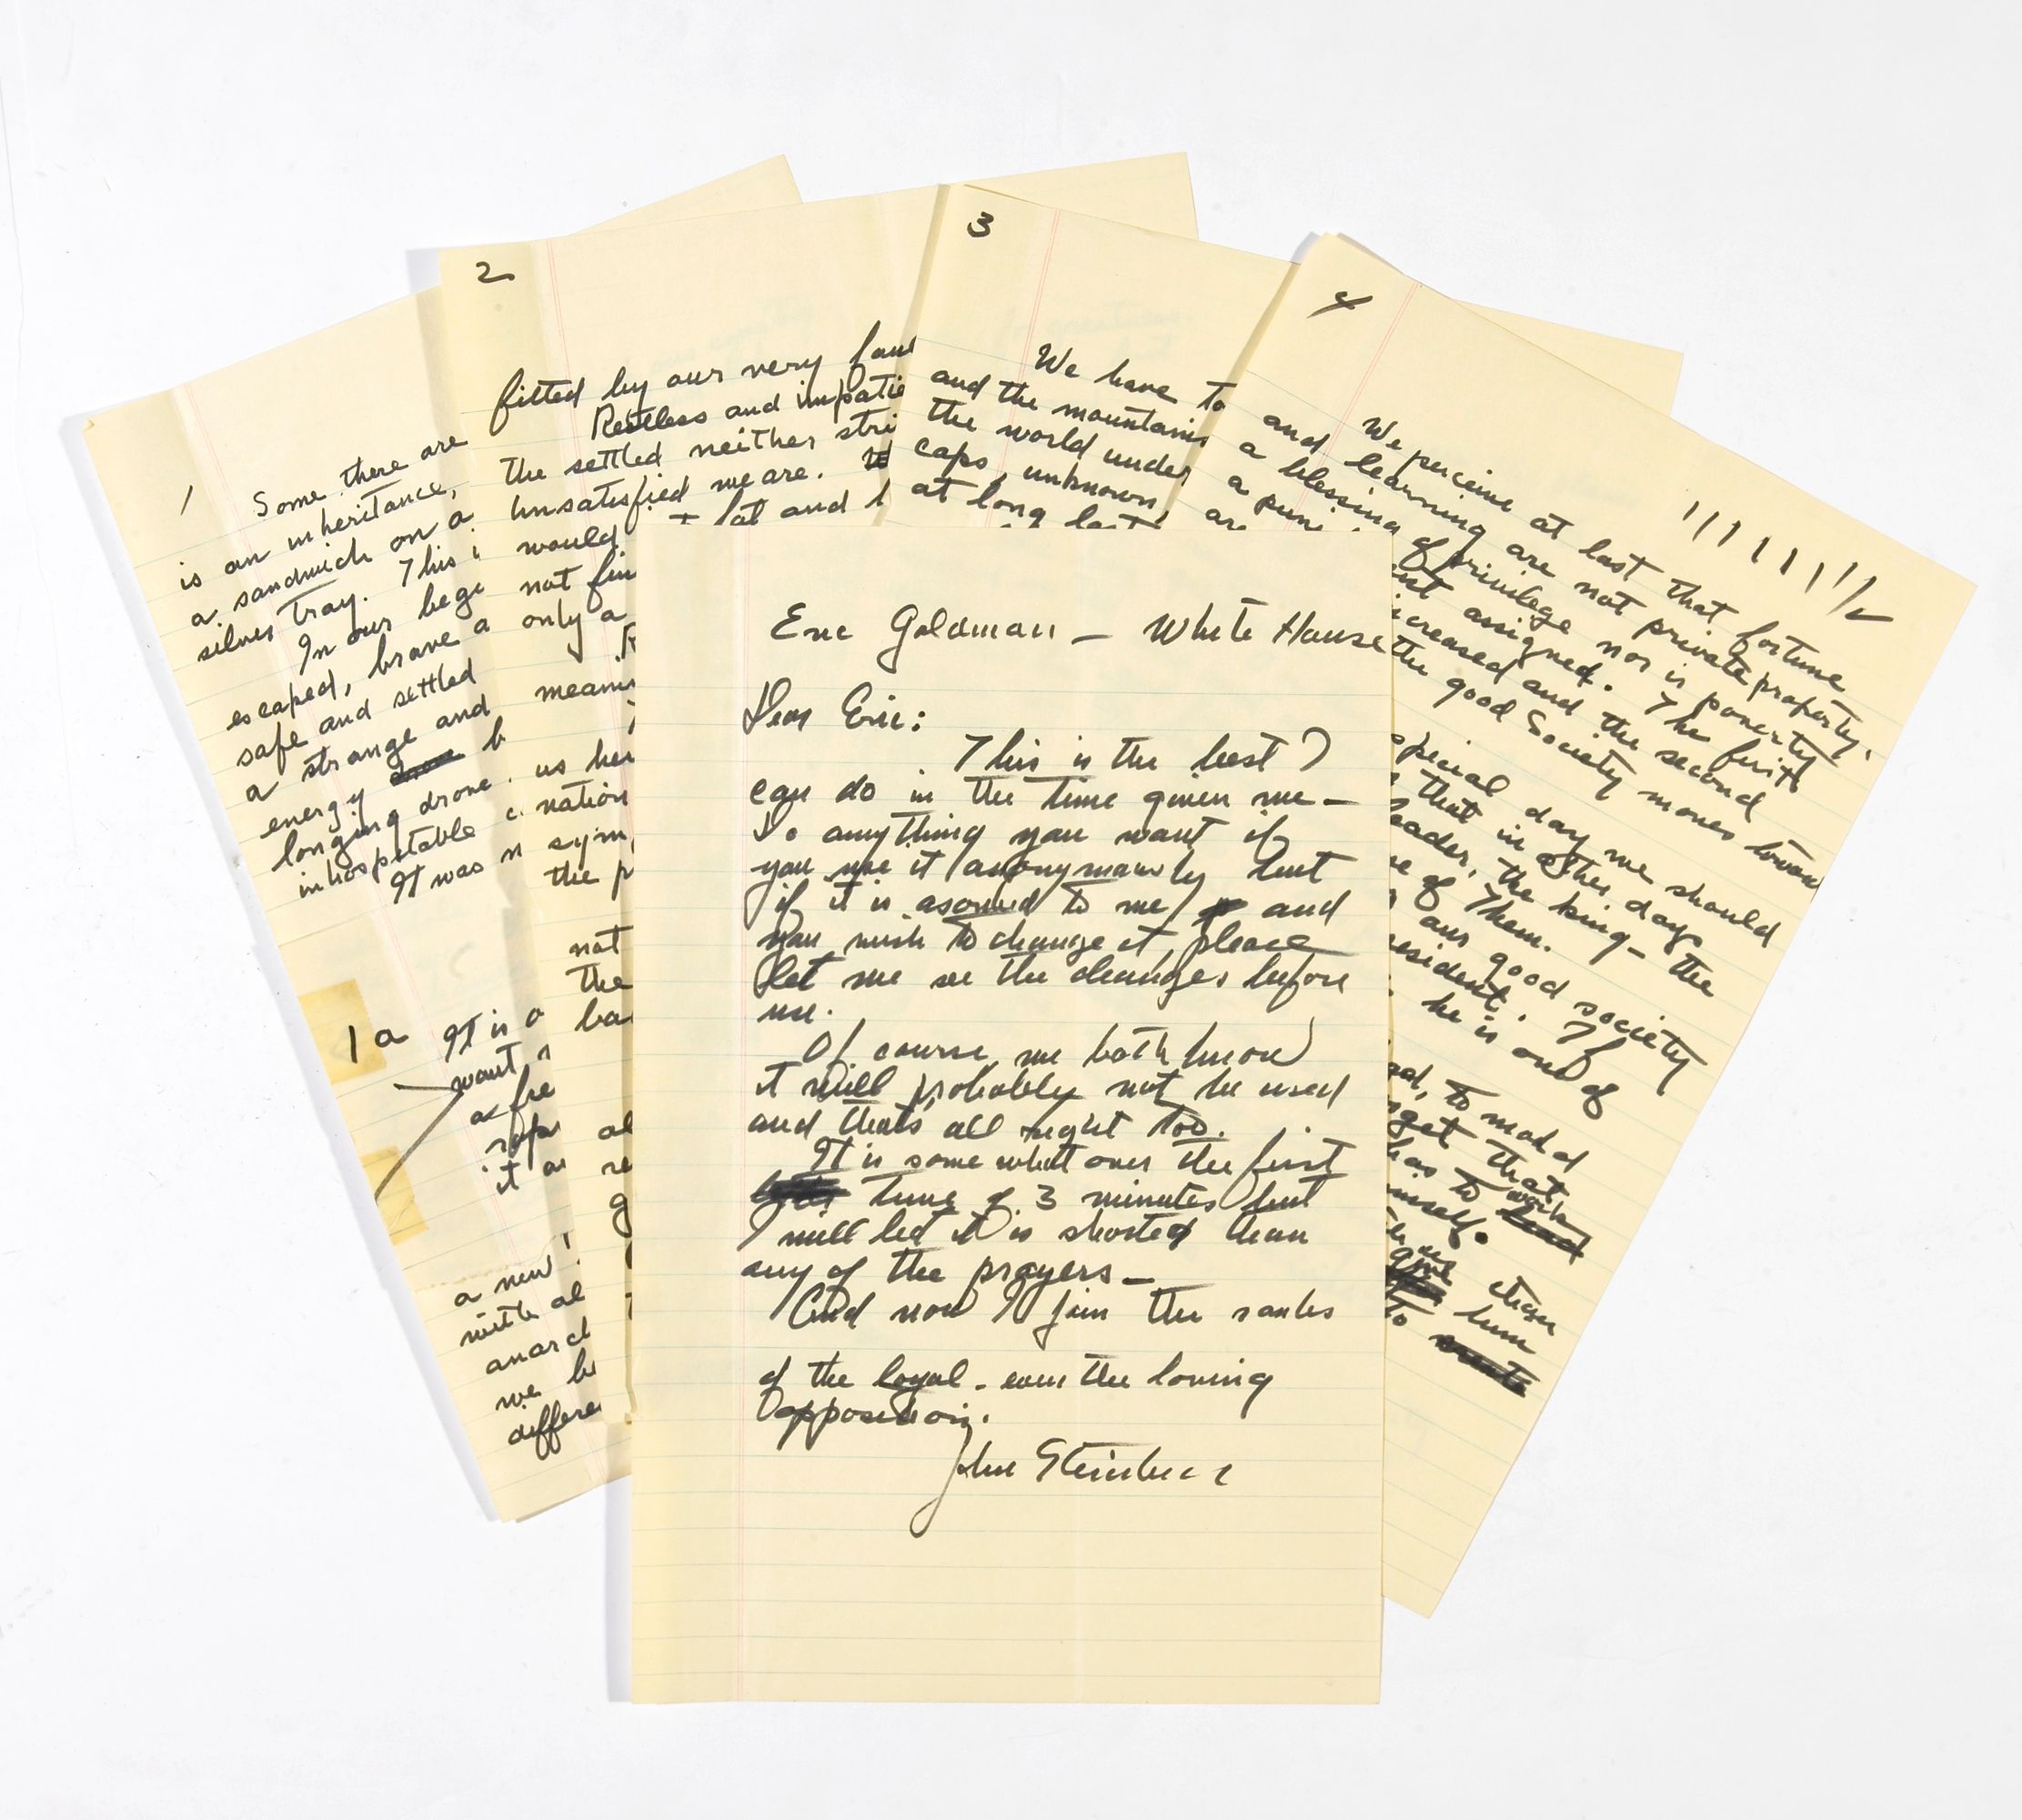 1
Some there are
is an inheritance,
a sandwich on a
silver tray. This i
In our begi
escaped, brave a
safe and settled
a strange and
energy b
longing drone.
inhospitable
It was n
1a
It is a
want
a fre
it a
a new
with al
anarch
we b
differe
2
fitted by our very faul
Restless and impatie
the settled neither stri
Unsatisfied we are.
lat and
would
not fin
only a
meani
us her
nation
sym
the p
not
the
ba
al
re
g
3
We have to
and the mountains
the world under
caps, unknown,
at long last
4
We perceive at last that fortune
and learning are not private property,
a blessing of privilege nor is poverty
a puni ist assigned. The first
are creased and the second
the good Society moves towar
special day we should
that in other days
eader, the king — the
e of them.
our good society
esident. If
he is one of
to mold
get that
has to work
mself.
give
to him
Eric Goldman — White House
Dear Eric:
This is the best I
can do in the time given me —
Do anything you want if
you use it anonymously but
if it is assigned to me and
you wish to change it, please
let me see the changes before
use.
Of course, we both know
it will probably not be used
and thats all right too.
It is some what over the first
time of 3 minutes but
I will bet it is shorter than
any of the prayers —
And now I join the ranks
of the loyal - even the loving
opposition.
John Steinbeck